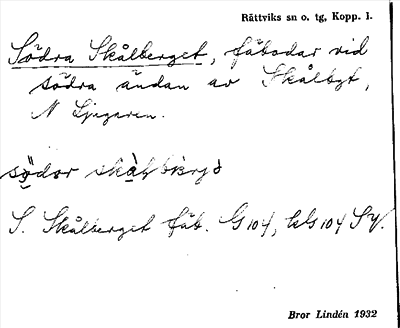 Rättviks sn o. tg, Kopp. l.
Södra Skålberget, fäbodar vid
södra ändan av Skålbgt,
N Ljugaren.
S. Skålberget fäb. G 104, kls 104 SV.
Bror Lindén 1932